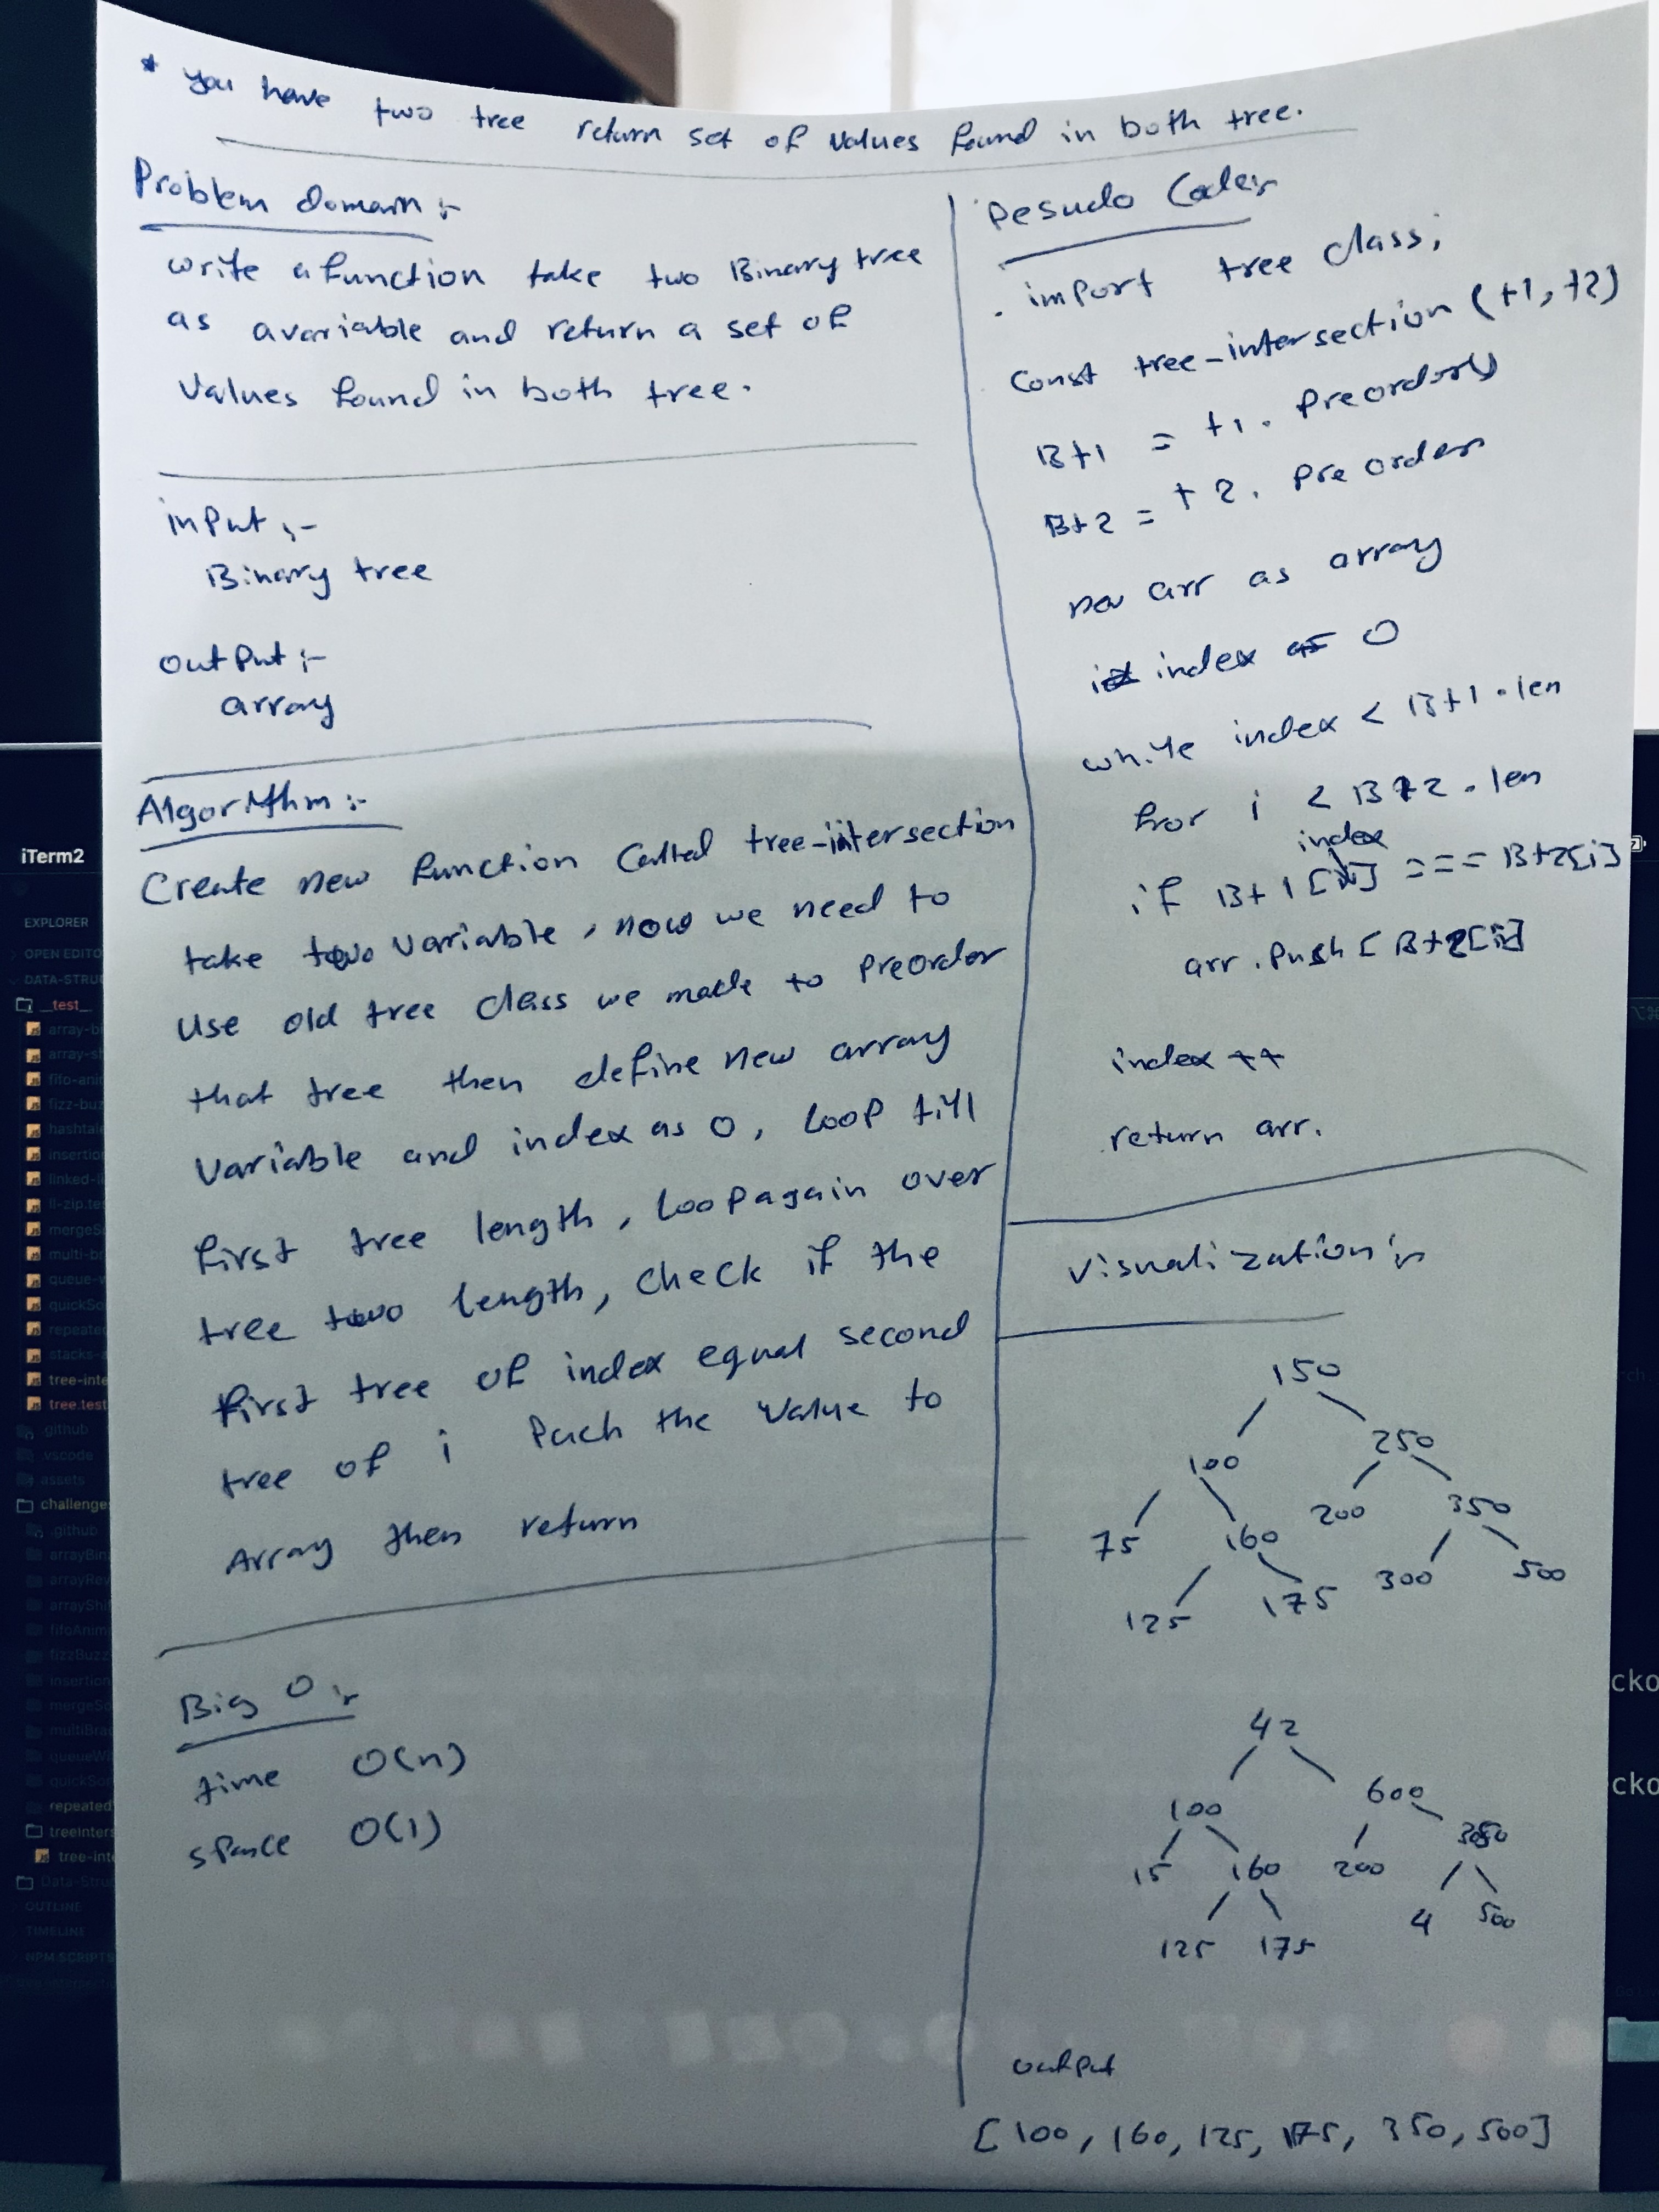 * you have two tree return set of values found in both tree.
Problem domain :-
write a function take two Binary tree
as a variable and return a set of
values found in both tree.
input :-
Binary tree
output :-
array
Algorithm :-
Create new function Called tree-intersection
take two variable, now we need to
use old tree class we made to Preorder
that tree then define new array
variable and index as 0, Loop till
first tree length, Loop again over
tree two length, check if the
first tree of index equal second
tree of i Puch the value to
Array then return
Big O :-
time O(n)
space O(1)
Pesudo Code :-
import tree class;
Const tree-intersection (t1, t2)
Bt1 = t1. Preorder()
Bt2 = t2. Pre order
new arr as array
index = 0
while index < Bt1.len
for i < Bt2.len
index
if Bt1[] === Bt2[i]
arr.Push [Bt2[i]
index ++
return arr.
Visualization :-
150
100 250
75 160 200 350
125 175 300 500
42
100 600
15 160 200 350
125 175 4 500
output
[100, 160, 125, 175, 350, 500]
iTerm2
EXPLORER
OPEN EDITO
DATA-STRU
__test__
array-bi
array-sh
fifo-ani
fizz-buz
hashtale
insertion
linked-li
ll-zip.te
mergeS
multi-br
queue-w
quickSo
repeated
stacks-a
tree-inte
tree.test
.github
.vscode
assets
challenge
.github
arrayBin
arrayRev
arrayShif
fifoAnim
fizzBuzz
insertion
mergeSo
multiBrac
queueWi
quickSor
repeated
treeInters
tree-int
Data-Stru
OUTLINE
TIMELINE
NPM SCRIPTS
cko
cko